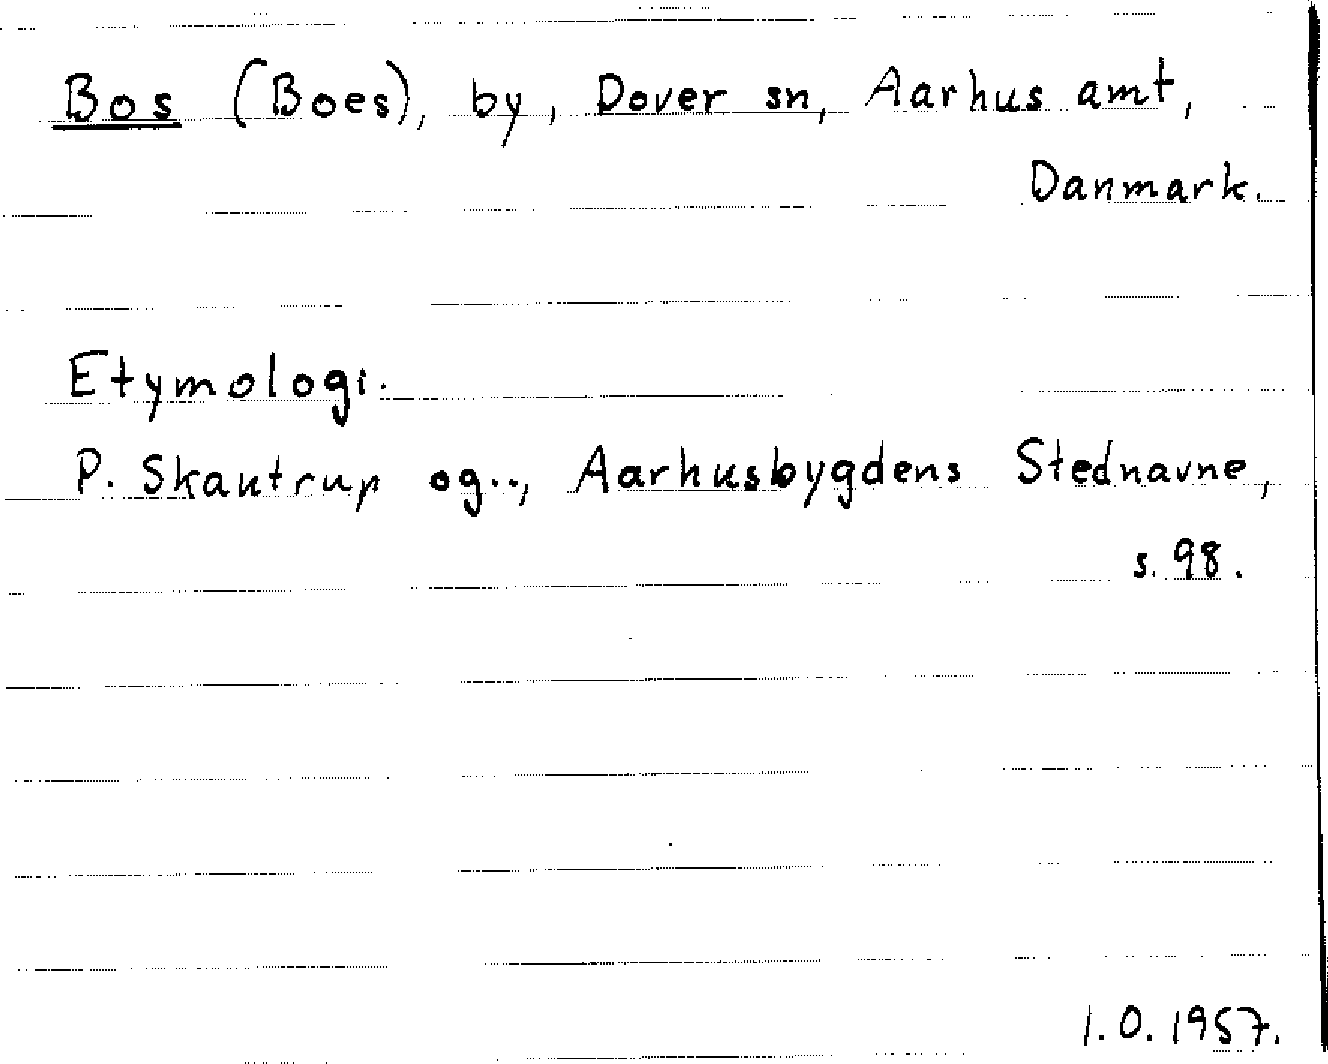 Bos (Boes), by, Dover sn, Aarhus amt,
Danmark.
Etymologi.
P. Skautrup og.., Aarhusbygdens Stednavne,
s. 98.
1.0.1957.